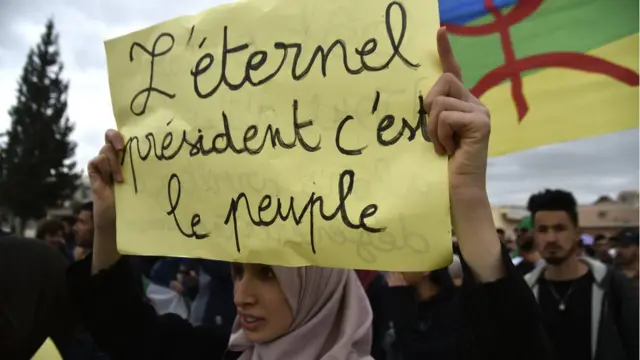 L'éternel
président c'est
le peuple